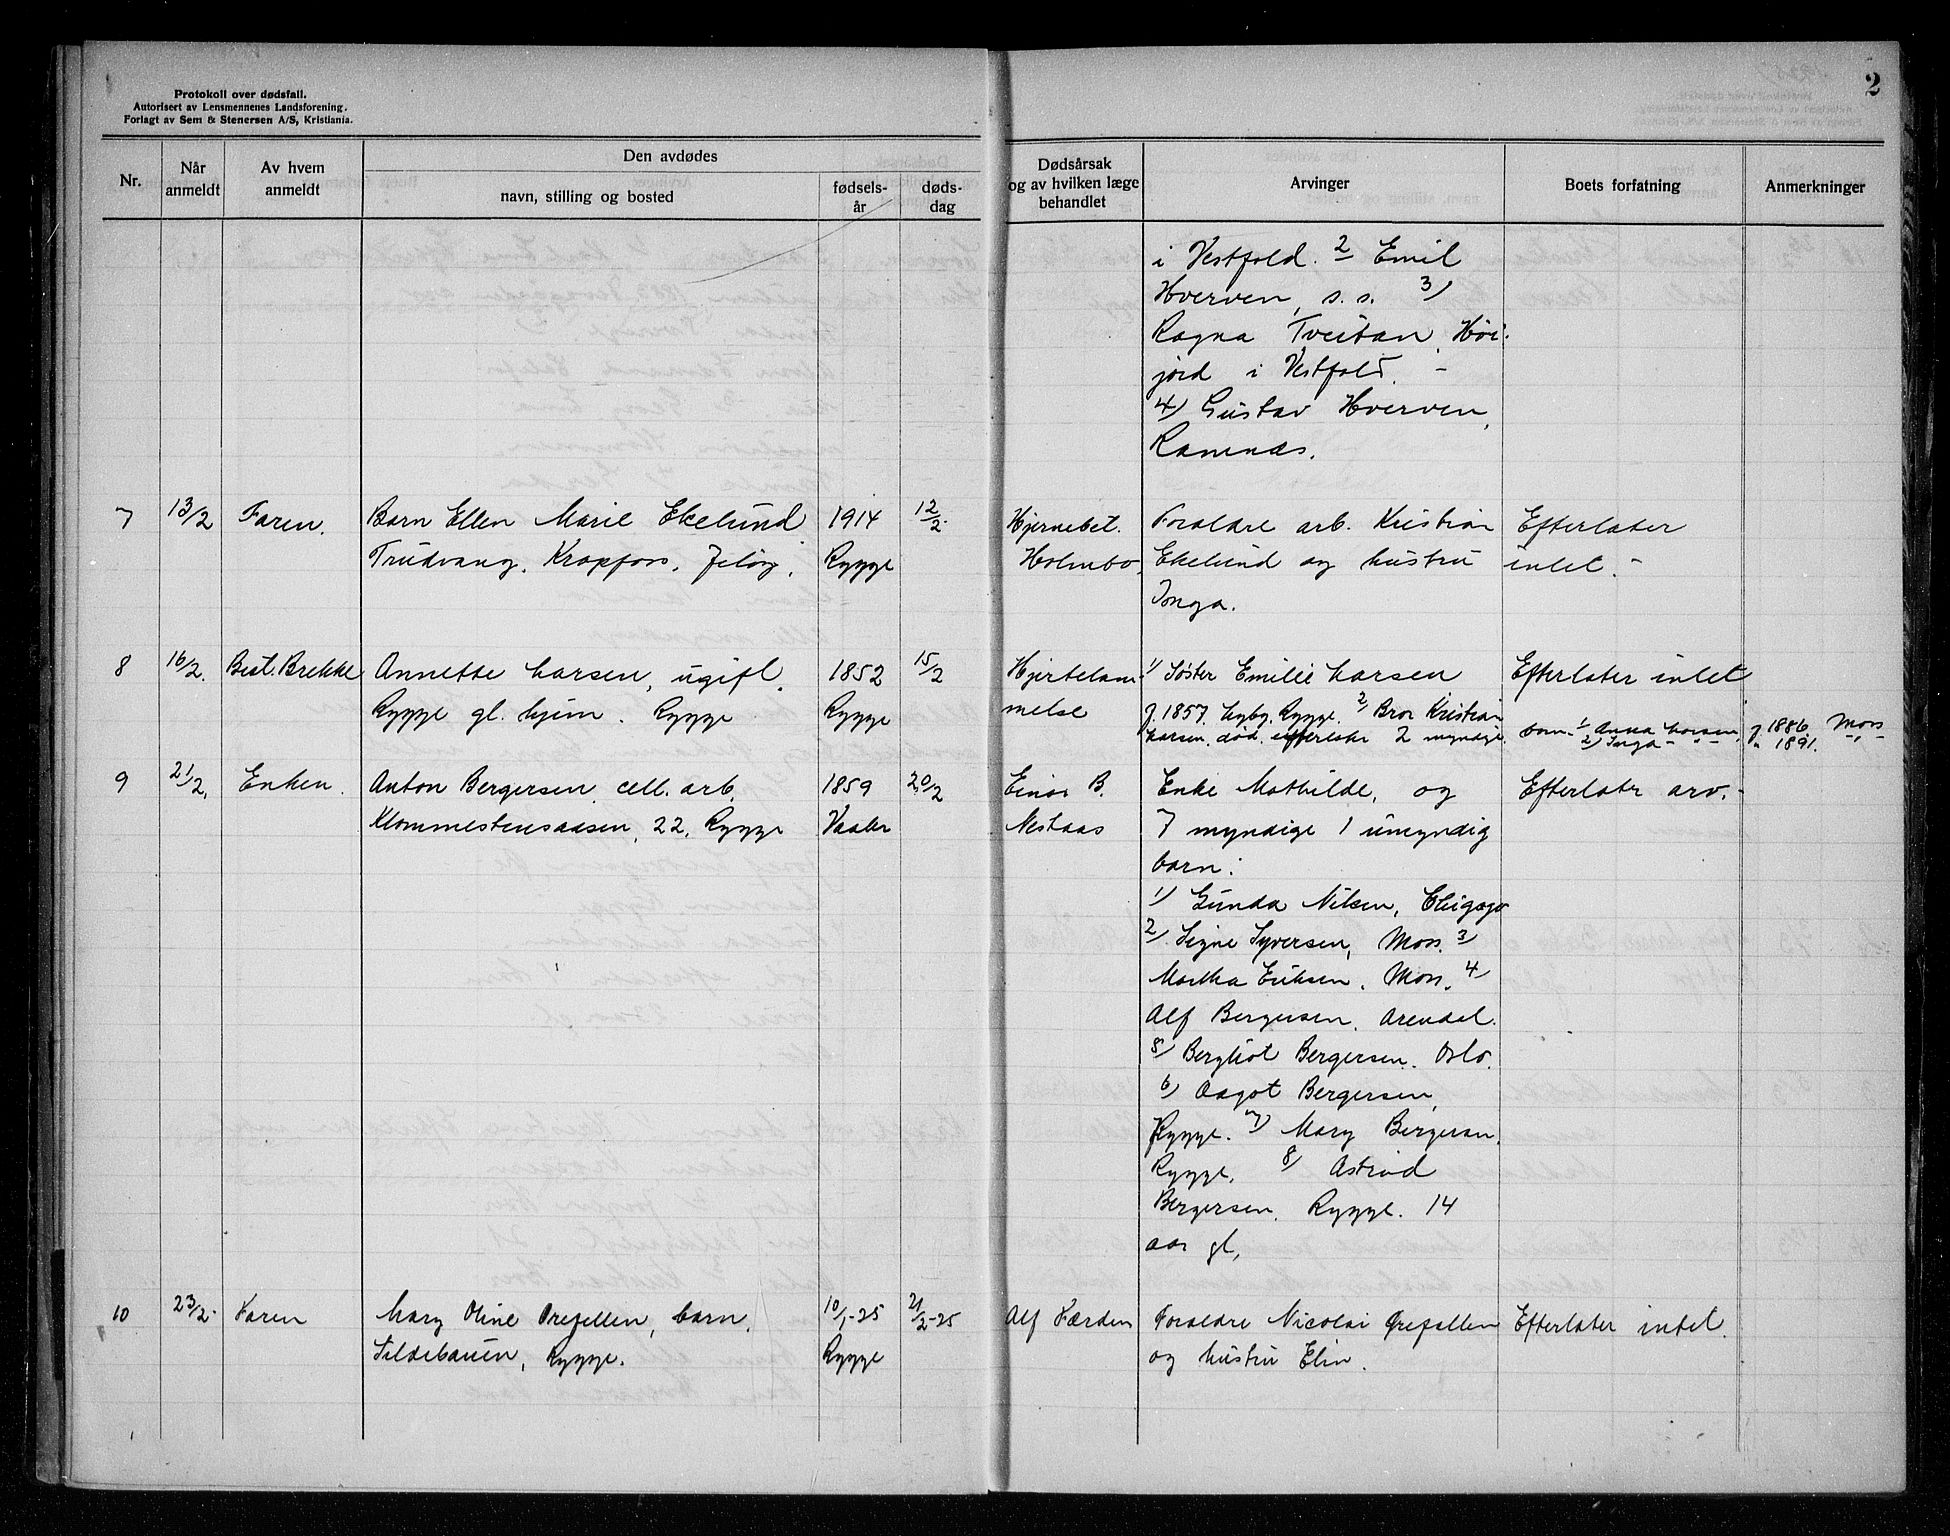 2
Protokoll over dødsfall.
Autorisert av Lensmennenes Landsforening.
Forlagt av Sem & Stenersen A/S, Kristiania.
Nr.
Når anmeldt
Av hvem anmeldt
Den avdødes
navn, stilling og bosted
fødsels-år
døds-dag
Dødsårsak og av hvilken læge behandlet
Arvinger
Boets forfatning
Anmerkninger
i Vestfold. 2 Emil
Hverven, s. s. 3)
Ragna Tveitan, Høi-
jord i Vestfold. -
4) Gustav Hverven,
Ramnæs.
7 13/2 Faren. Barn Ellen Marie Ekelund 1914 12/2. Hjernebet. Forældre arb. Kristian Efterlater
Trudvang, Krapfoss, Jeløy. Rygge Holmbo. Ekelund og hustru intet. -
Inga.
8 16/2. Best. Brekke Annette Larsen, ugift. 1852 15/2 Hjertelam- 1) Søster Emilie Larsen Efterlater intet
Rygge gl. hjem. Rygge Rygge melse f. 1857. Rygge. 2) Bror Kristian
Larsen, død. efterlater 2 myndige barn. 1) Anna Larsen, f. 1886. Moss
2) Inga -"- " 1891. -"-
9 21/2. Enken. Anton Bergersen, cell. arb. 1859 20/2 Einar B. Enke Mathilde, og Efterlater arv. -
Klommestensaasen, 22, Rygge Vaaler Nestaas 7 myndige 1 umyndig
barn:
1) Gunda Nilsen, Chigago
2) Signe Syversen, Moss. 3)
Martha Eriksen, Moss. 4)
Alf Bergersen, Arendal.
5) Bergliot Bergersen. Oslo.
6) Aagot Bergersen,
Rygge. 7) Mary Bergersen,
Rygge, 8) Astrid
Bergersen, Rygge. 14
aar gl,
10 23/2. Faren Mary Oline Orefellen, barn. 10/1-25 21/2-25 Alf Færden Forældre Nicolai Orefellen Efterlater intet.
Sildebauen, Rygge. Rygge og hustru Elin.